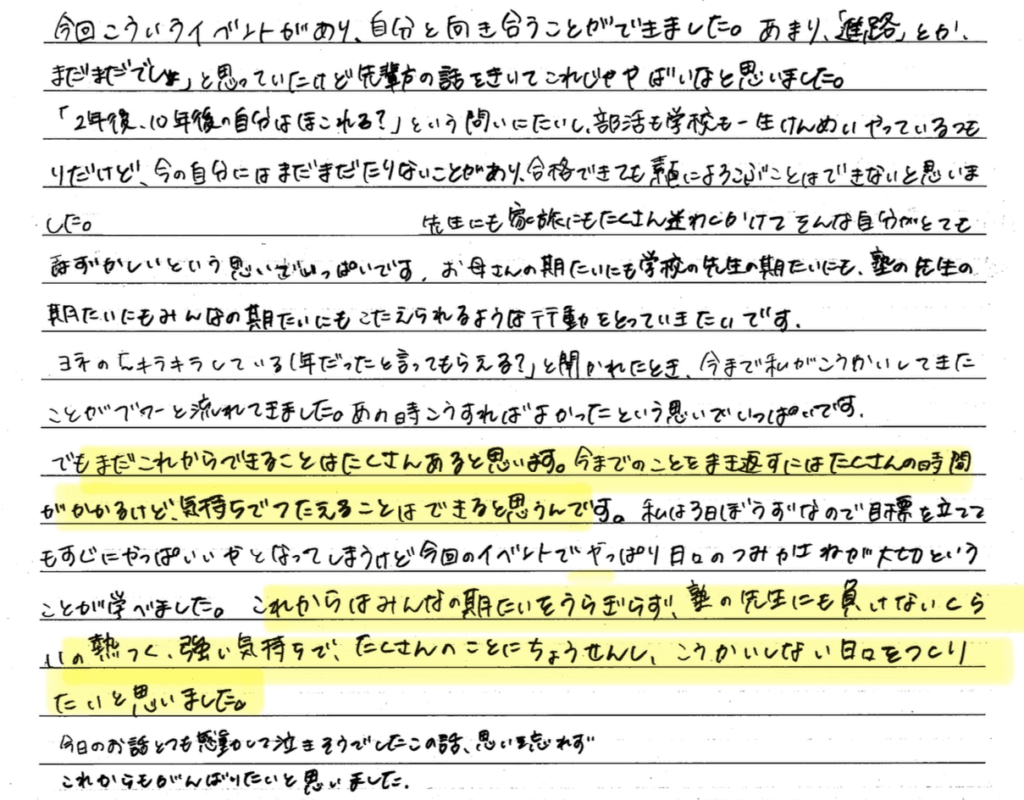 今回こういうイベントがあり、自分と向き合うことができました。あまり、「進路」とか、
まだまだでしょ」と思っていたけど先輩方の話をきいてこれじゃやばいなと思いました。
「2年後、10年後の自分はほこれる?」という問いにたいし、部活も学校も一生けんめいやっているつも
りだけど、今の自分にはまだまだたりないことがあり、合格できても素直によろこぶことはできないと思いま
した。 先生にも家族にもたくさん迷わくかけてそんな自分がとても
はずかしいという思いでいっぱいです。お母さんの期たいにも学校の先生の期たいにも、塾の先生の
期たいにもみんなの期たいにもこたえられるような行動をとっていきたいです。
キラキラしている1年だったと言ってもらえる?」と聞かれたとき、今まで私がこうかいしてきた
ことがブワーと流れてきました。あの時こうすればよかったという思いでいっぱいです。
でもまだこれからできることはたくさんあると思います。今までのことをまき返すにはたくさんの時間
がかかるけど、気持ちでつたえることはできると思うんです。私は3日ぼうずなので目標を立てて
もすぐにやっぱいいやとなってしまうけど今回のイベントでやっぱり日々のつみかさねが大切という
ことが学べました。これからはみんなの期たいをうらぎらず、塾の先生にも負けないくら
いの熱つく、強い気持ちで、たくさんのことにちょうせんし、こうかいしない日々をつくり
たいと思いました。
今日のお話とても感動して泣きそうでしたこの話、思いを忘れず
これからもがんばりたいと思いました.